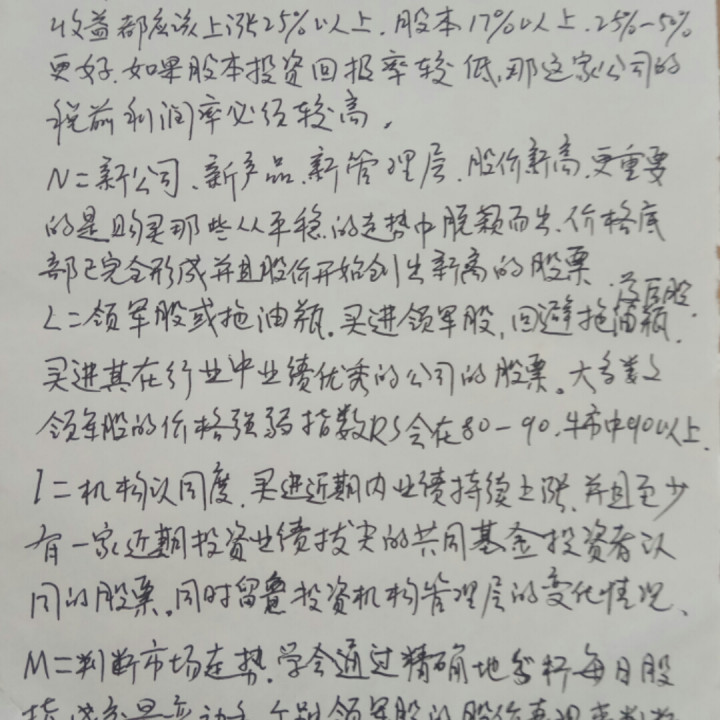 收益都应该上涨25%以上.股本17%以上.25%-50%
更好.如果股本投资回报率较低,那这家公司的
税前利润率必须较高.
N=新公司、新产品、新管理层.股价新高.更重要
的是购买那些从平稳的走势中脱颖而出.价格底
部已完全形成并且股价开始创出新高的股票.
L=领军股或拖油瓶.买进领军股,回避拖油瓶.落后股.
买进其在行业中业绩优秀的公司的股票.大多数
领军股的价格强弱指数RS会在80-90.牛市中90以上.
I=机构认同度.买进近期内业绩持续上涨.并且至少
有一家近期投资业绩拔尖的共同基金投资者认
同的股票.同时留意投资机构管理层的变化情况、
M=判断市场走势.学会通过精确地分析每日股